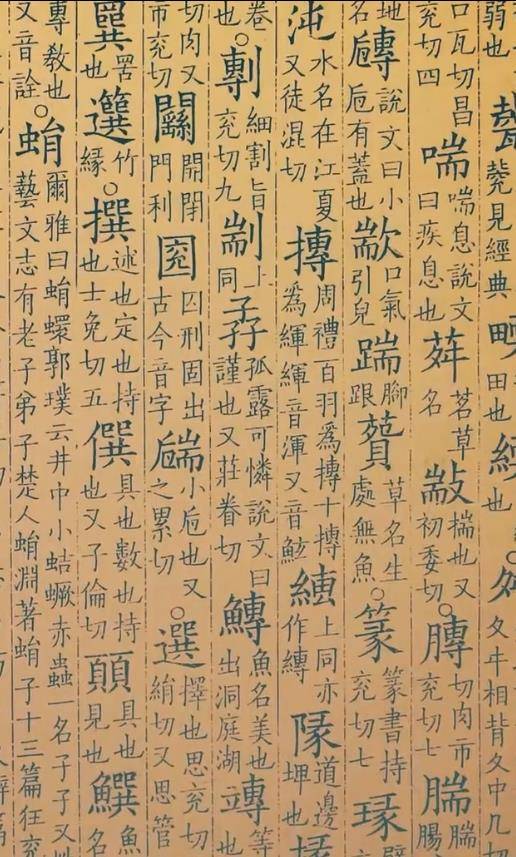 弱也 甍見經典 田也 也○舛夂㐄相背夂中几切
口瓦切昌兖切四喘喘息說文曰疾息也荈茗草名㪜揣也又初委切○膞切肉市兖切七腨腨腸
地名 說文曰小巵有蓋也歂口氣引皃踹腳跟 草名生處無魚○篆篆書持兖切七瑑璧
沌水名在江夏又徒混切摶周禮百羽爲摶十摶爲緷緷音渾又音 上同亦作縳隊道邊埤也
卷也○剸細割旨兖切九剬上同孨孤露可憐說文曰謹也又莊眷切鱄魚名美也出洞庭湖竱等也
切肉又市兖切 開閉門利 囚刑固出古今音字 小巵也又之累切○選擇也思兖切又思管
罟也 竹緣○撰述也定也持也士免切五僎具也數也持也又子倫切 具也見也 魚名
專教也又音詮○蜎爾雅曰蜎蠉郭璞云井中小蛣蟩赤蟲一名孑孓又 藝文志有老子弟子楚人蜎淵著蜎子十三篇狂兖